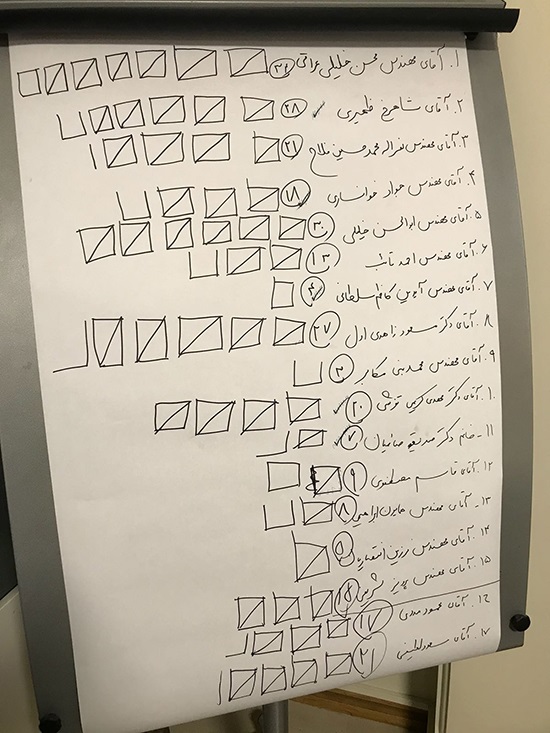 ۱. آقای مهندس محسن خلیلی عراقی ۳۴
۲. آقای شاهرخ ظهیری ۲۸
۳. آقای مهندس نصراله محمدحسین فلاح ۲۱
۴. آقای مهندس جواد خوانساری ۱۸
۵. آقای مهندس ابوالحسن خلیلی ۳۰
۶. آقای مهندس احمد ۱۳
۷. آقای مهندس آرین کاظم سلطانی ۴
۸. آقای دکتر مسعود زاهدی اول ۲۷
۹. آقای مهندس محمد بنی ۳
۱۰. آقای دکتر مهدی کریمی تفرشی ۲۰
۱۱- خانم دکتر صدیقه ۷
۱۲. آقای قاسم مصطفوی ۹
۱۳- آقای مهندس هارون ابراهیمی ۸
۱۴. آقای مهندس زرین ۵
۱۵. آقای مهندس پرویز
۱۶. آقای محمود مددی ۱۷
۱۷. آقای مسعود لطیفی ۲۱